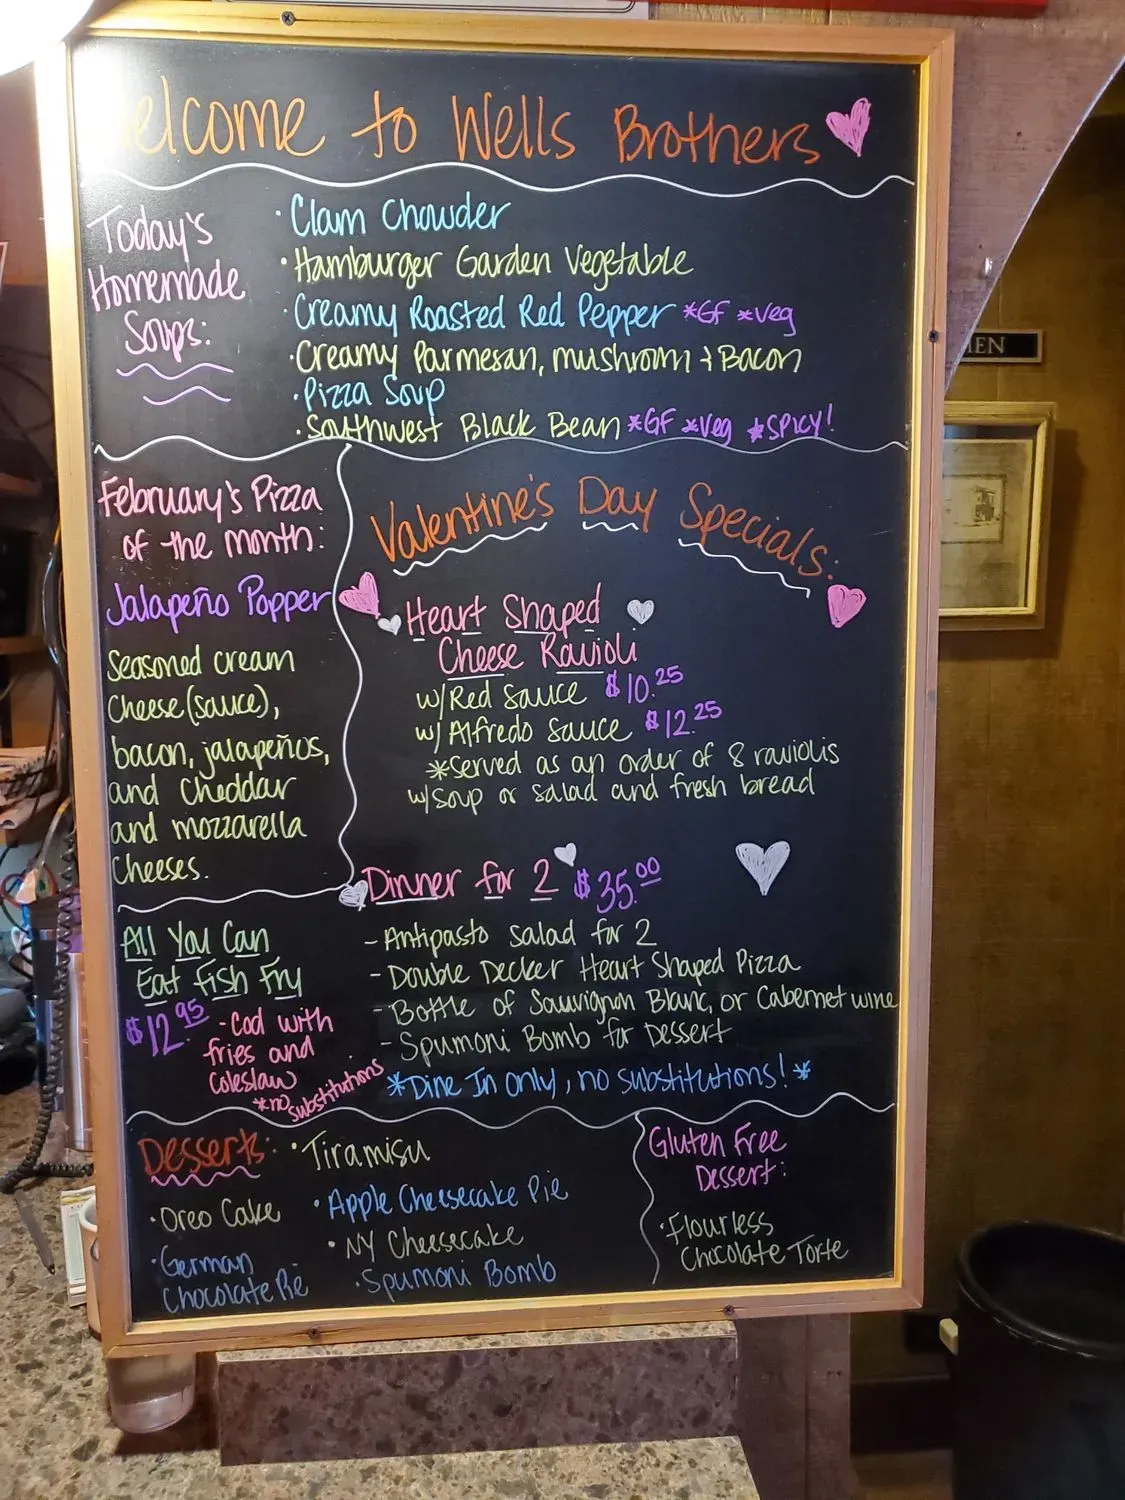 Welcome to Wells Brothers
Today's
Homemade
Soups:
· Clam Chowder
· Hamburger Garden Vegetable
· Creamy Roasted Red Pepper *GF *Veg
· Creamy Parmesan, mushroom + Bacon
· Pizza Soup
· Southwest Black Bean *GF *Veg *SPICY!
February's Pizza
of the month:
Jalapeño Popper
Seasoned cream
cheese (sauce),
bacon, jalapeños,
and cheddar
and mozzarella
cheeses.
Valentine's Day Specials:
Heart Shaped
Cheese Ravioli
w/ Red Sauce $10.25
w/ Alfredo Sauce $12.25
*Served as an order of 8 raviolis
w/ soup or salad and fresh bread
Dinner for 2 $35.00
- Antipasto salad for 2
- Double Decker Heart Shaped Pizza
- Bottle of Sauvignon Blanc, or Cabernet wine
- Spumoni Bomb for Dessert
*Dine In Only, no substitutions! *
All You Can
Eat Fish Fry
$12.95 - Cod with
fries and
coleslaw
*no substitutions
Desserts:
· Tiramisu
· Oreo Cake
· Apple Cheesecake Pie
· German
Chocolate Pie
· NY Cheesecake
· Spumoni Bomb
Gluten Free
Dessert:
· Flourless
Chocolate Torte